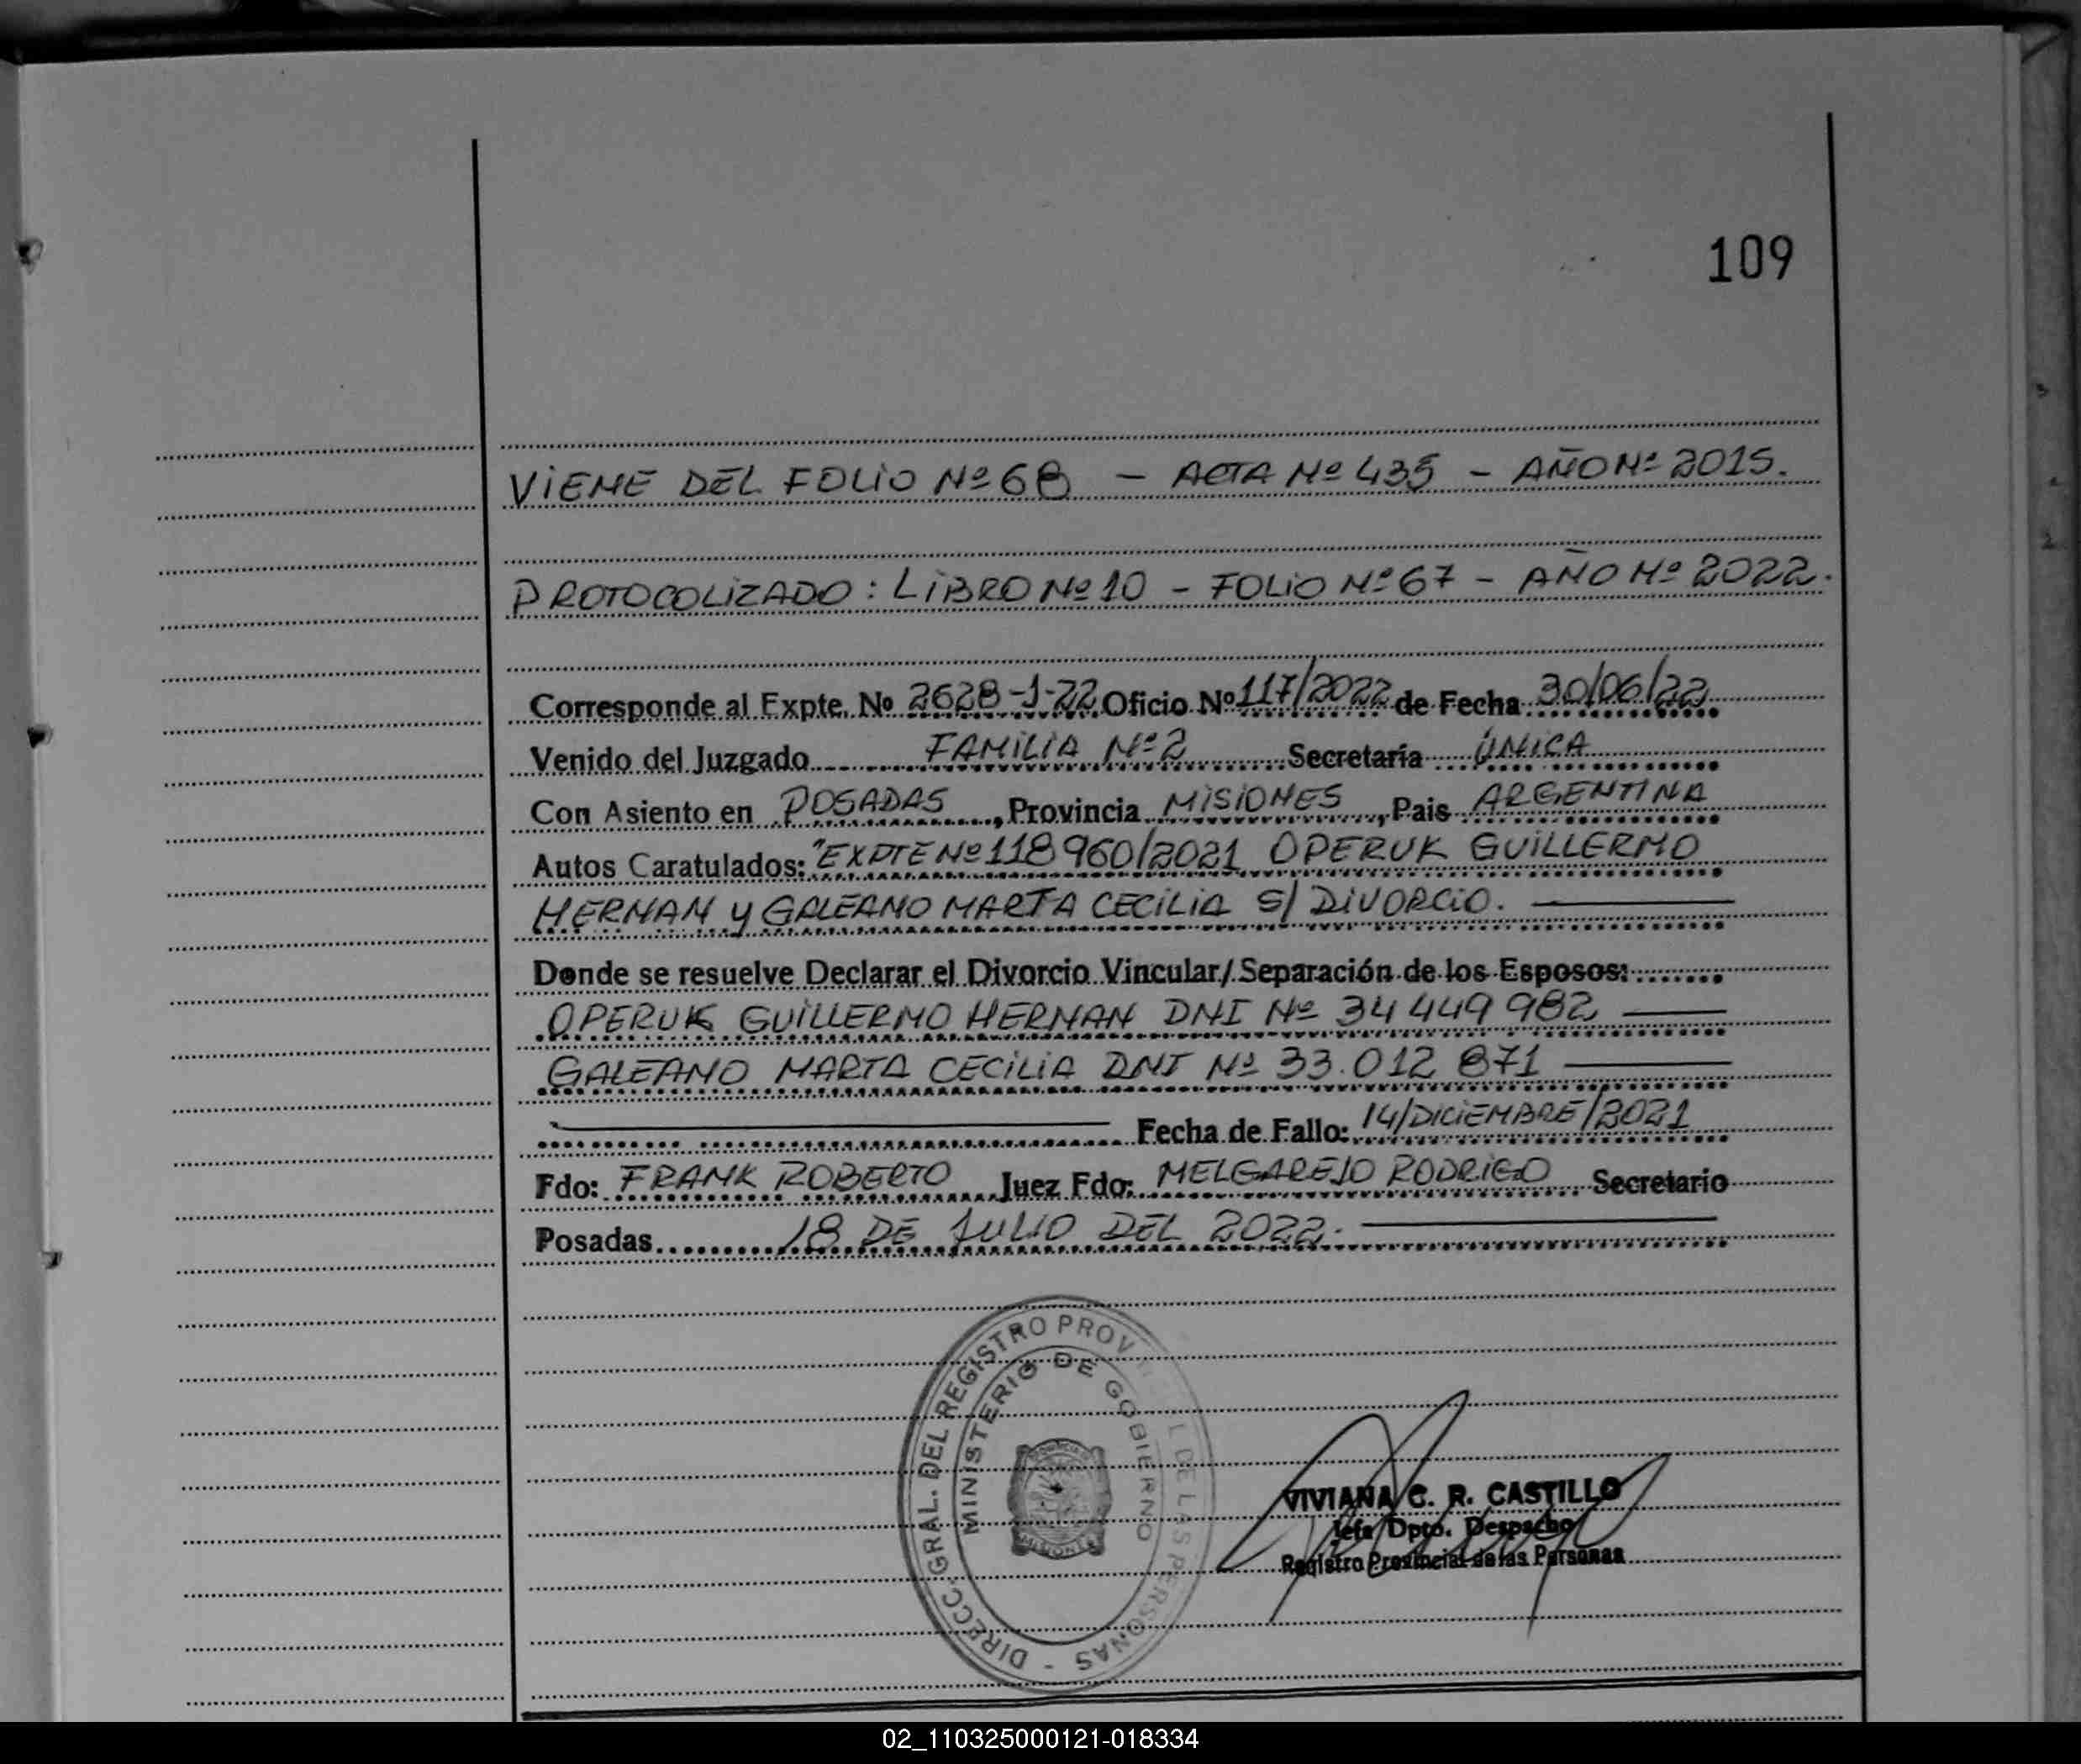 109
VIENE DEL FOLIO Nº 68 - ACTA Nº 435 - AÑO Nº 2015.
PROTOCOLIZADO: LIBRO Nº 10 - FOLIO Nº 67 - AÑO Nº 2022.
Corresponde al Expte. Nº 2628-1-22 Oficio Nº 117/2022 de Fecha 30/06/22
Venido del Juzgado FAMILIA Nº 2 Secretaría ÚNICA
Con Asiento en POSADAS, Provincia MISIONES, Pais ARGENTINA
Autos Caratulados: "EXPTE Nº 118960/2021 OPERUK GUILLERMO
HERNAN y GALEANO MARTA CECILIA S/ DIVORCIO.
Donde se resuelve Declarar el Divorcio Vincular/Separación de los Esposos:
OPERUK GUILLERMO HERNAN DNI Nº 34 449 982
GALEANO MARTA CECILIA DNI Nº 33.012 871
Fecha de Fallo: 14/DICIEMBRE/2021
Fdo: FRANK ROBERTO Juez Fdo: MELGAREJO RODRIGO Secretario
Posadas 18 DE JULIO DEL 2022.
DIRECC. GRAL. DEL REGISTRO PROV L DE LAS PERSONAS -
MINISTERIO DE GOBIERNO
MISIONES
VIVIANA C. R. CASTILLO
Jefa Dpto. Despacho
Registro Provincial de las Personas
02_110325000121-018334